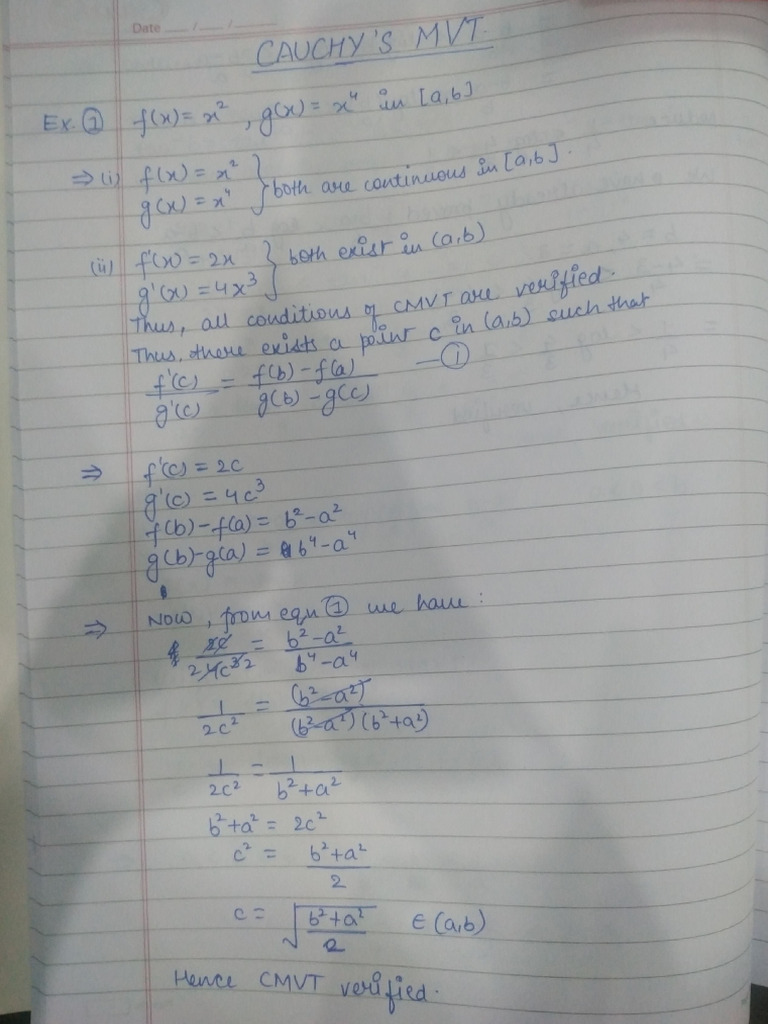 Date __/__/__
CAUCHY'S MVT.
Ex. ① f(x) = x², g(x) = x⁴ in [a,b]
⇒ (i) f(x) = x² } both are continuous in [a,b].
g(x) = x⁴
(ii) f'(x) = 2x } both exist in (a,b)
g'(x) = 4x³
Thus, all conditions of CMVT are verified.
Thus, there exists a point c in (a,b) such that
f'(c)/g'(c) = f(b) - f(a)/g(b) - g(c) — ①
⇒ f'(c) = 2c
g'(c) = 4c³
f(b) - f(a) = b² - a²
g(b) - g(a) = b⁴ - a⁴
⇒ Now, from eqn ① we have :
2c/2 4c³ 2 = b² - a²/b⁴ - a⁴
1/2c² = (b² - a²)/(b² - a²)(b² + a²)
1/2c² = 1/b² + a²
b² + a² = 2c²
c² = b² + a²/2
c = √b² + a²/2 ∈ (a,b)
Hence CMVT verified.